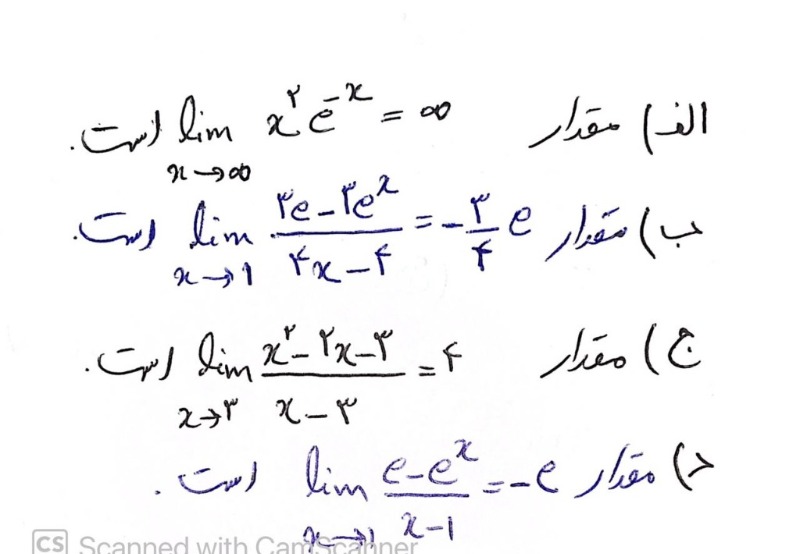 الف) مقدار lim x→∞ x^۲ e^-x = ∞ است.
ب) مقدار lim x→۱ (۳e-۳e^x)/(۴x-۴) = -۳/۴ e است.
ج) مقدار lim x→۳ (x^۲-۲x-۳)/(x-۳) = ۴ است.
د) مقدار lim x→۱ (e-e^x)/(x-۱) = -e است.
CS Scanned with CamScanner